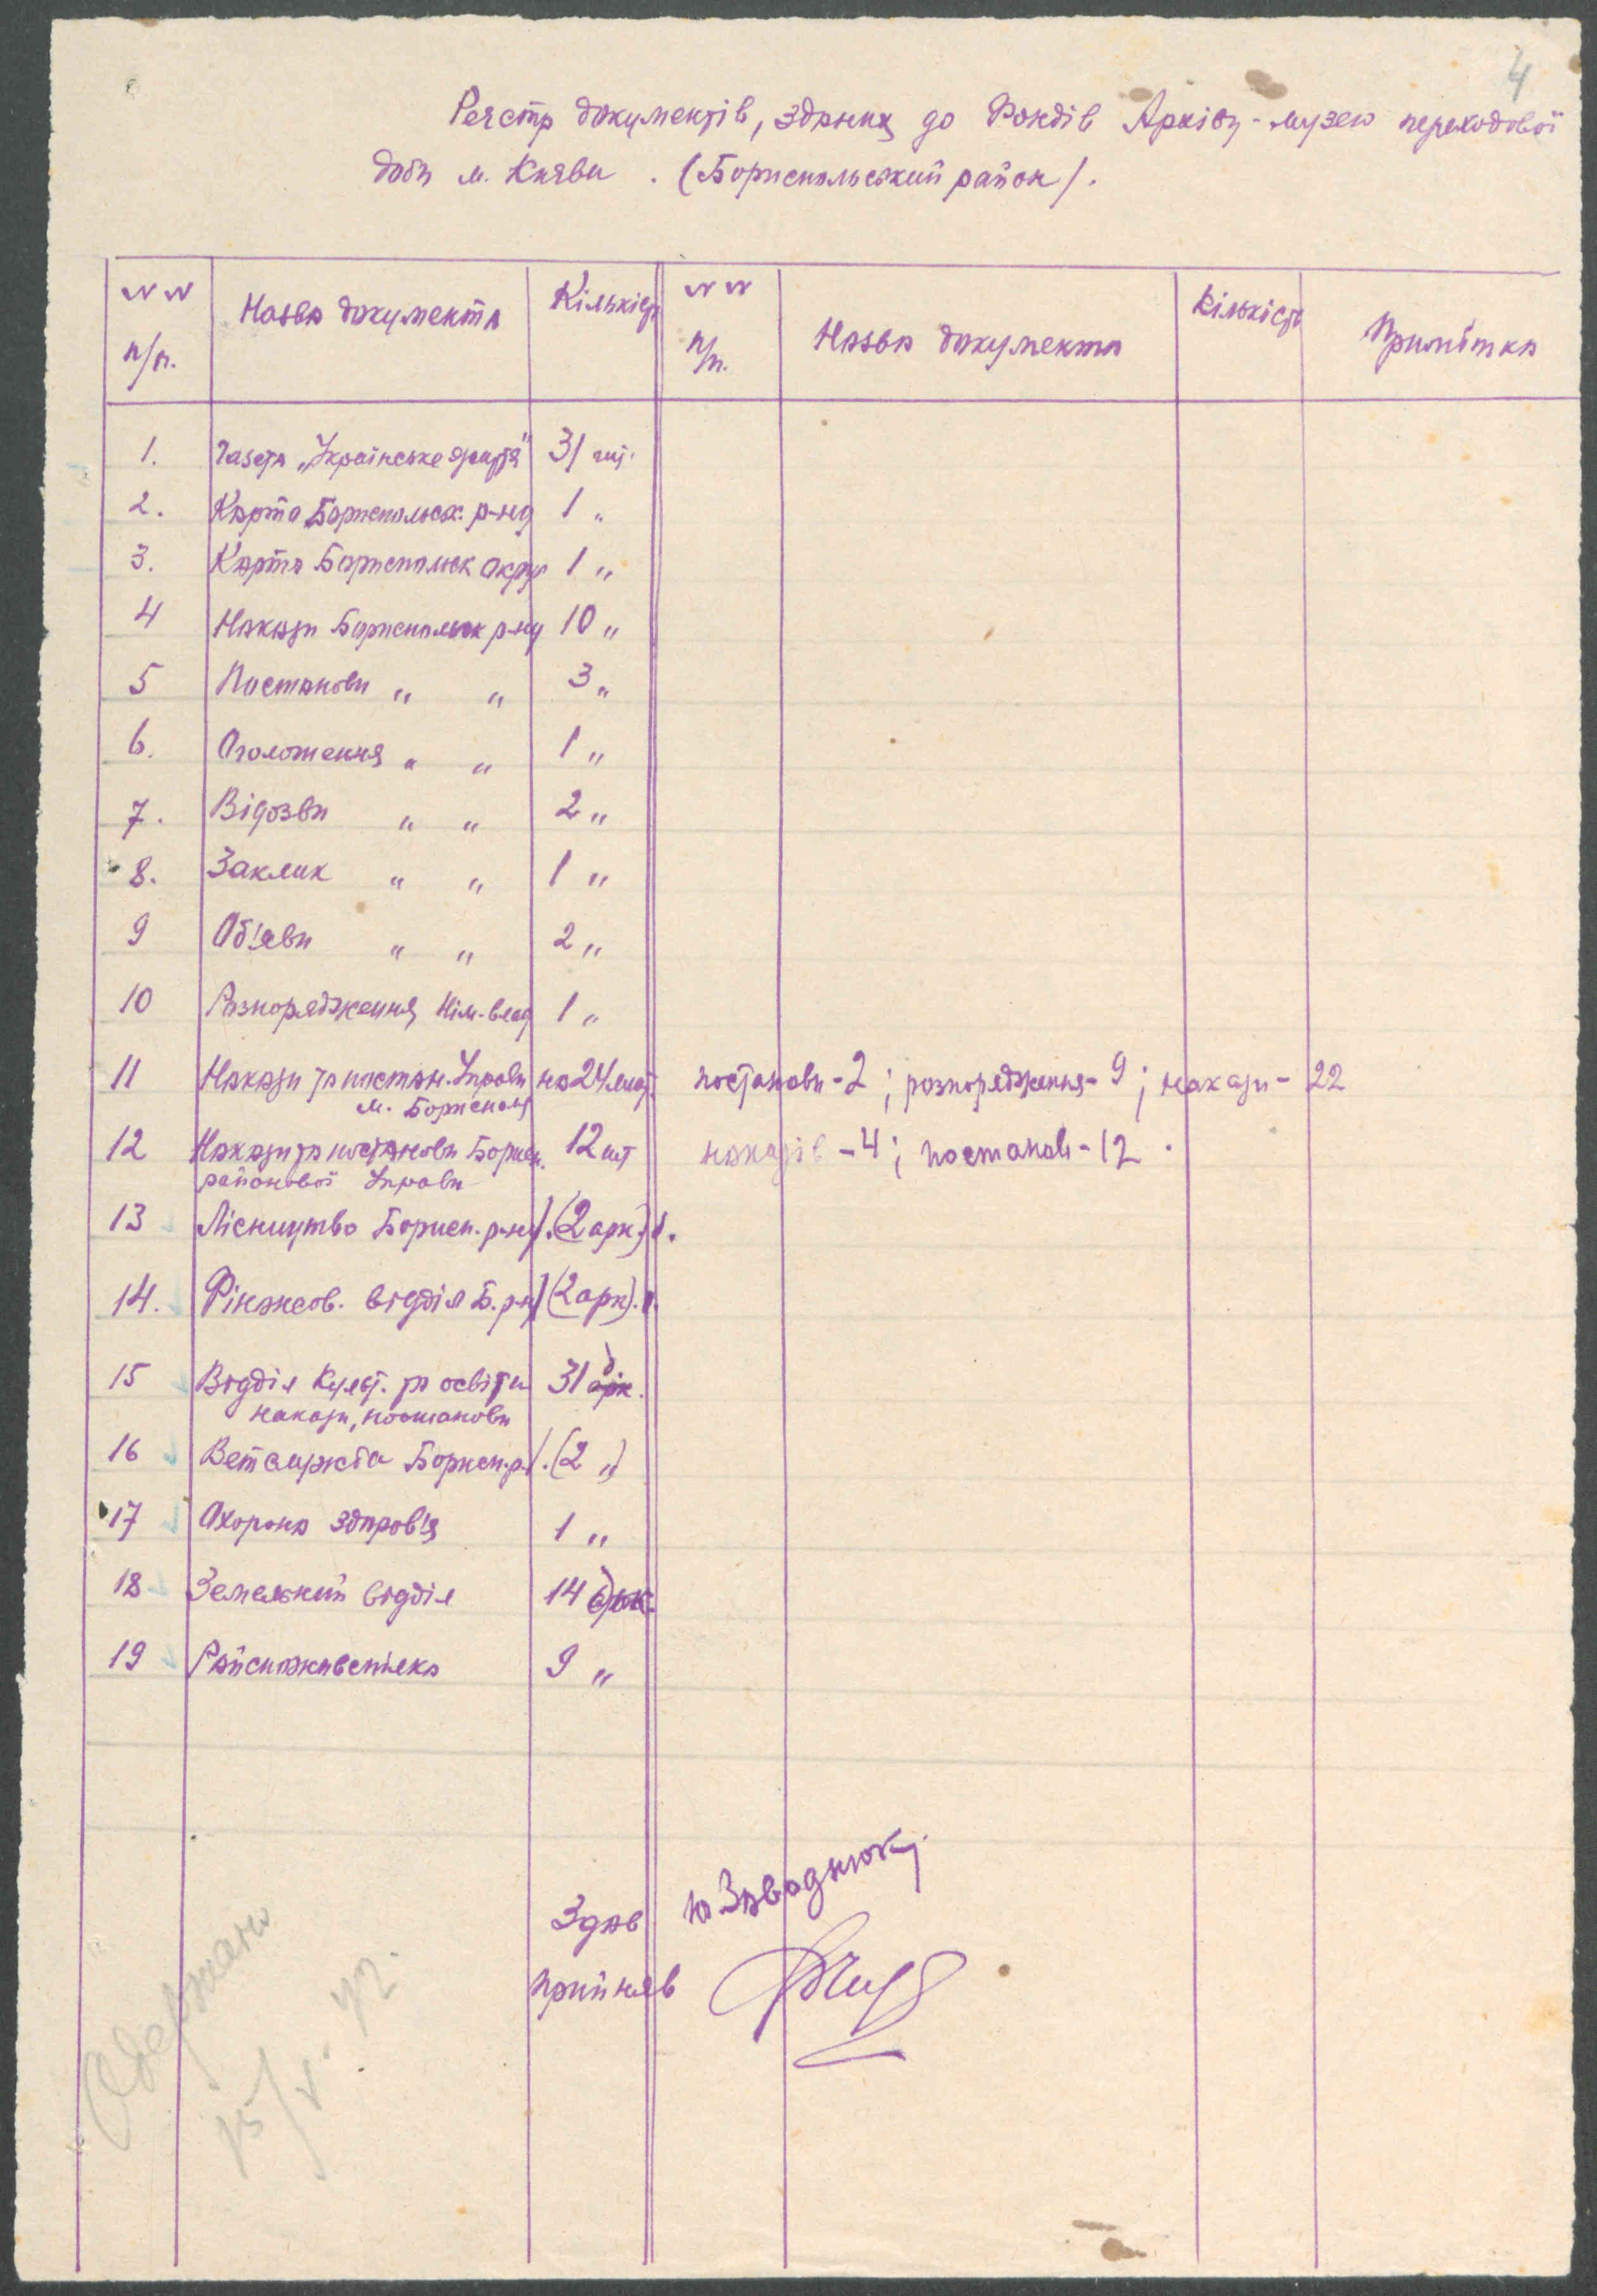 4
Реєстр документів, зданих до Фондів Архіву-музею переходової
доби м. Києва. (Бориспільський район).
№№ п/п. Назва документа Кількість №№ п/п. Назва документа Кількість Примітка
1. Газета „Українське життя" 31 шт.
2. Карта Бориспольск. р-ну 1 "
3. Карта Бориспольск округ 1 "
4 Накази Бориспольск р-ну 10 "
5 Постанови " " 3 "
6. Оголошення " " 1 "
7. Відозви " " 2 "
8. Заклик " " 1 "
9 Об'яви " " 2 "
10 Розпорядження Нім. влад 1 "
11 Накази та постан. Управи на 24 лист. постанови - 2; розпорядження - 9; накази - 22
м. Борисполя
12 Накази та постанови Борисп. 12 шт наказів - 4; постанов - 12.
районової Управи
13 Лісництво Борисп. р-ну 1. (2 арк.)
14. Фінансов. відділ Б. р-н 1 (2 арк).
15 Відділ культ. та освіти 31 арк.
накази, постанови
16 Ветлікарства Борисп. р. 1. (2 ")
17 Охорона здоров'я 1 "
18 Земельний відділ 14 арк.
19 Райспоживспілка 9 "
Здав Ю Заводнюк
Прийняв
Одержано
15/V. 42.